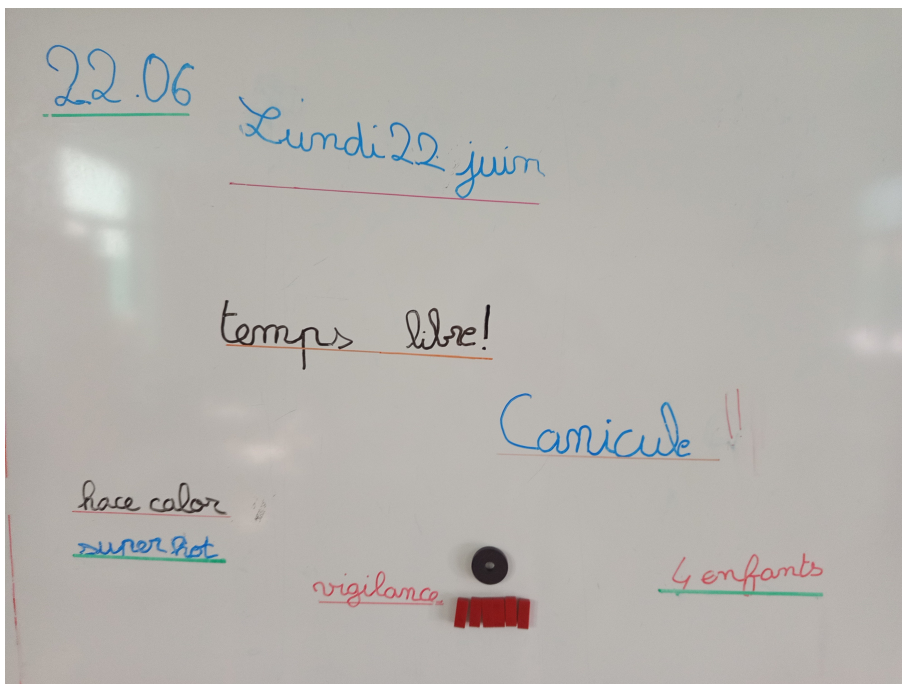 22.06
Lundi 22 juin
temps libre!
Canicule !!
hace calor
super hot
vigilance
4 enfants